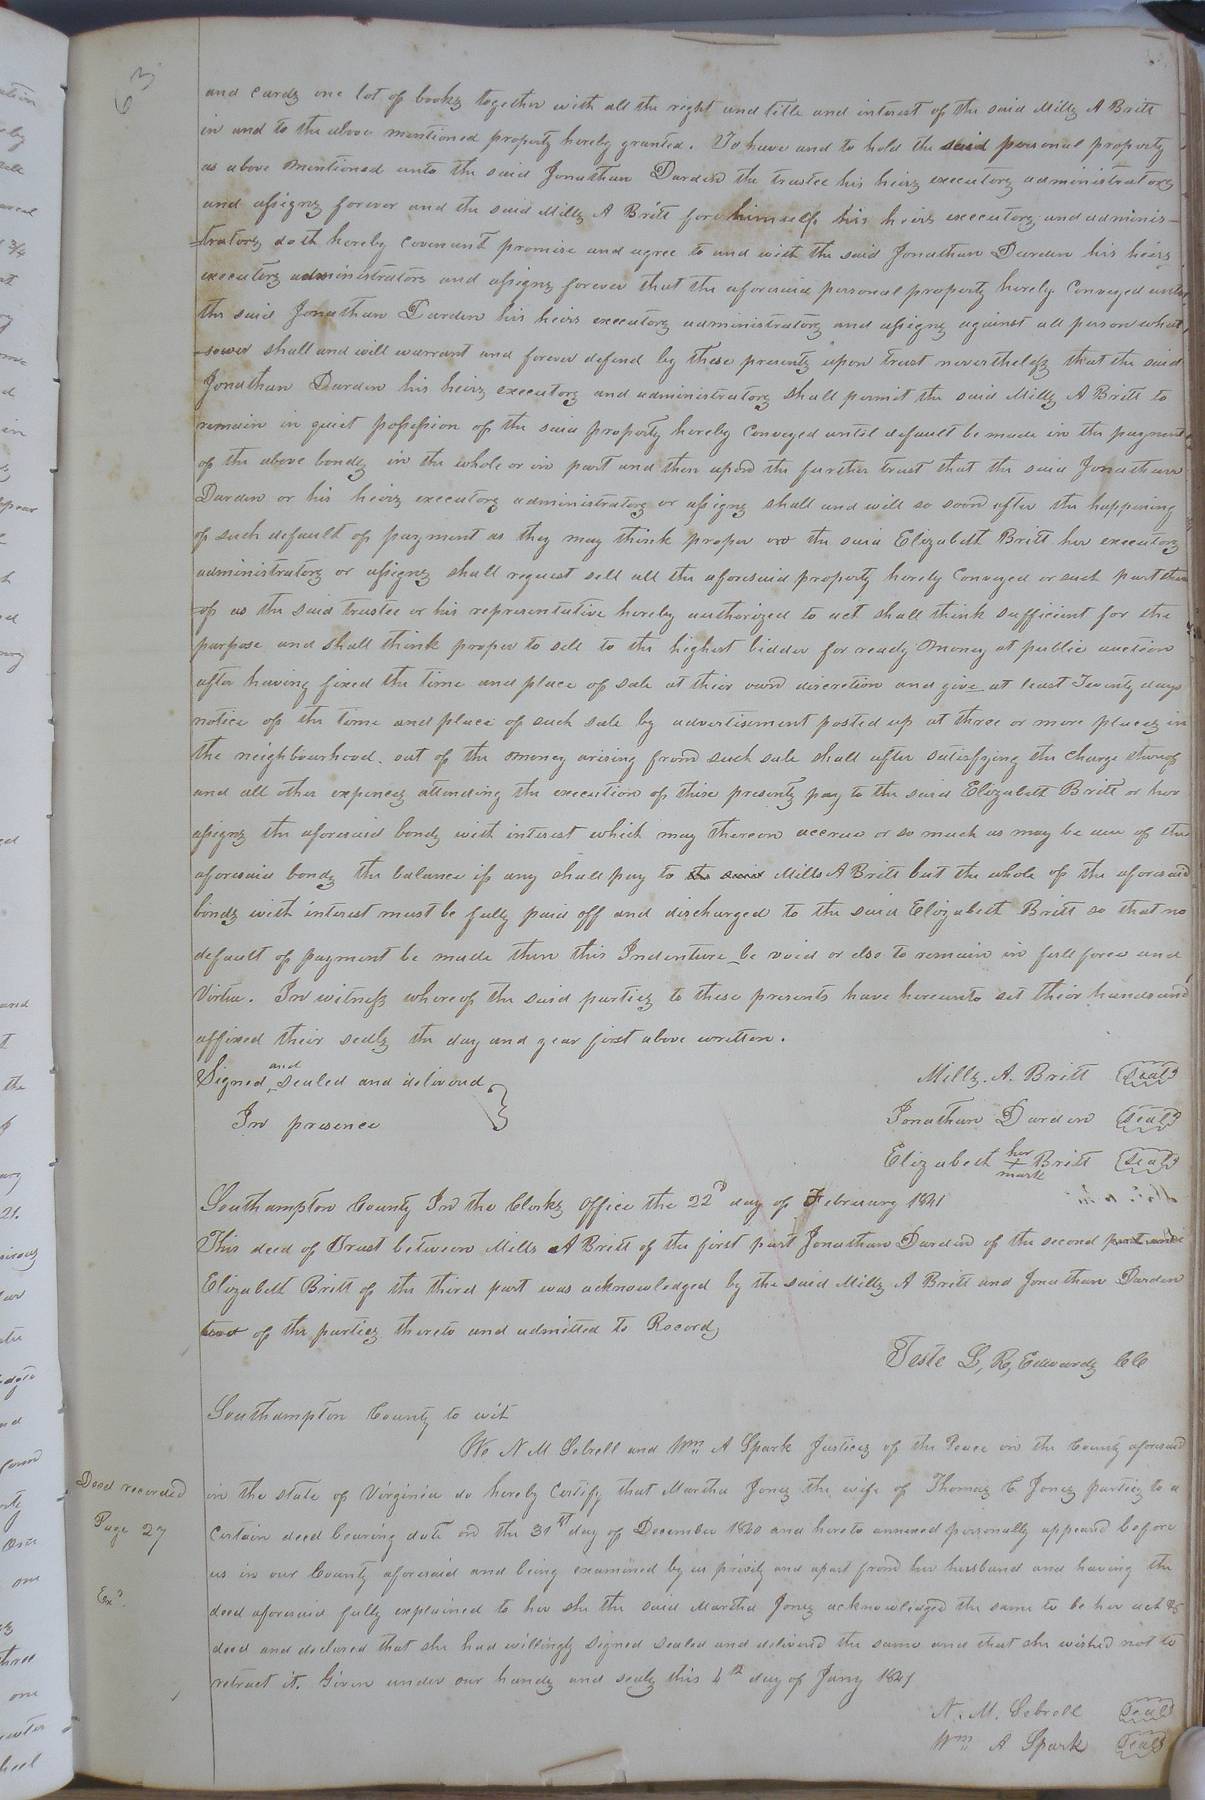 63
and cards one lot of books together with all the right and title and interest of the said Mills A Britt
in and to the above mentioned property hereby granted. To have and to hold the said personal property
as above mentioned unto the said Jonathan Darden the trustee his heirs executors administrators
and assigns forever and the said Mills A Britt for himself his heirs executors and adminis-
-trators doth hereby covenant promise and agree to and with the said Jonathan Darden his heirs
executors administrators and assigns forever that the aforesaid personal property hereby conveyed unto
the said Jonathan Darden his heirs executors administrators and assigns against all person what
-soever shall and will warrant and forever defend by these presents upon trust nevertheless that the said
Jonathan Darden his heirs executors and administrators shall permit the said Mills A Britt to
remain in quiet possession of the said property hereby conveyed until default be made in the payment
of the above bonds in the whole or in part and then upon the further trust that the said Jonathan
Darden or his heirs executors administrators or assigns shall and will so soon after the happening
of such default of payment as they may think proper or the said Elizabeth Britt her executors
administrators or assigns shall request sell all the aforesaid property hereby conveyed or such part there
-of as the said trustee or his representative hereby authorized to act shall think sufficient for the
purpose and shall think proper to sell to the highest bidder for ready money at public auction
after having fixed the time and place of sale at their own discretion and give at least Twenty days
notice of the time and place of such sale by advertisement posted up at three or more places in
the neighbourhood. out of the money arising from such sale shall after satisfying the charge thereof
and all other expences attending the execution of these presents pay to the said Elizabeth Britt or her
assigns the aforesaid bonds with interest which may thereon accrue or so much as may be due of the
aforesaid bonds the balance if any shall pay to the said Mills A Britt but the whole of the aforesaid
bonds with interest must be fully paid off and discharged to the said Elizabeth Britt so that no
default of payment be made then this Indenture be void or else to remain in full force and
Virtue. In witness whereof the said parties to these presents have hereunto set their hands and
affixed their seals the day and year first above written.
Signed and sealed and delivered } Mills. A. Britt (Seal)
In presence Jonathan Darden (Seal)
Elizabeth her + mark Britt (Seal)
Southampton County In the Clerks Office the 22d day of February 1841
This deed of Trust between Mills A Britt of the first part Jonathan Darden of the second part and
Elizabeth Britt of the third part was acknowledged by the said Mills A Britt and Jonathan Darden
of the parties thereto and admitted to Record,
Teste L, R, Edwards CC
Southampton County to wit
We N M Sebrell and Wm A Spark Justices of the Peace in the County aforesaid
Deed recorded
Page 27
Exd.
in the state of Virginia do hereby Certify that Martha Jones the wife of Thomas C Jones parties to a
certain deed bearing date on the 31st day of December 1840 and hereto annexed personally appeard before
us in our County aforesaid and being examined by us privily and apart from her husband and having the
deed aforesaid fully explained to her she the said Martha Jones acknowledged the same to be her act &
deed and declared that she had willingly signed sealed and delivered the same and that she wished not to
retract it. Given under our hands and seals this 4th day of Jany 1841
N. M. Sebrell (Seal)
Wm A Spark (Seal)